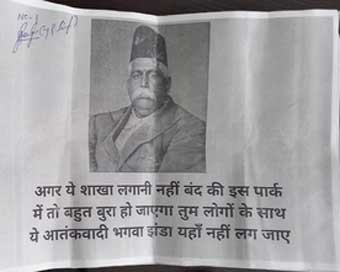 No-1
अगर ये शाखा लगानी नहीं बंद की इस पार्क
में तो बहुत बुरा हो जाएगा तुम लोगों के साथ
ये आतंकवादी भगवा झंडा यहाँ नहीं लग जाए